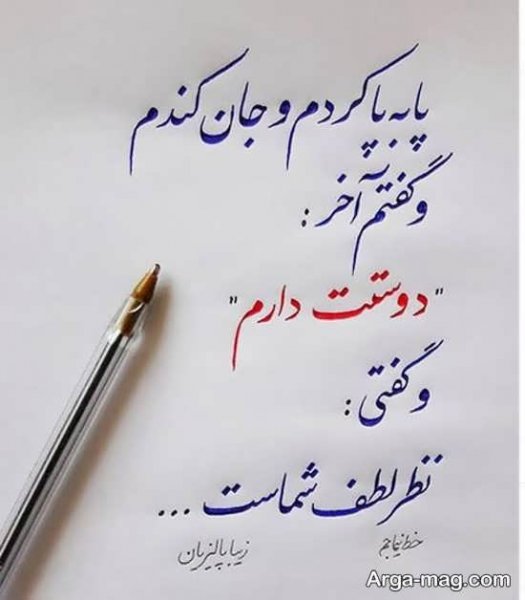 پا به پا کردم و جان کندم
و گفتم آخر :
"دوستت دارم"
و گفتی :
نظر لطف شماست ...
خط نیما نجم زیبا پالیزبان
Arga-mag.com